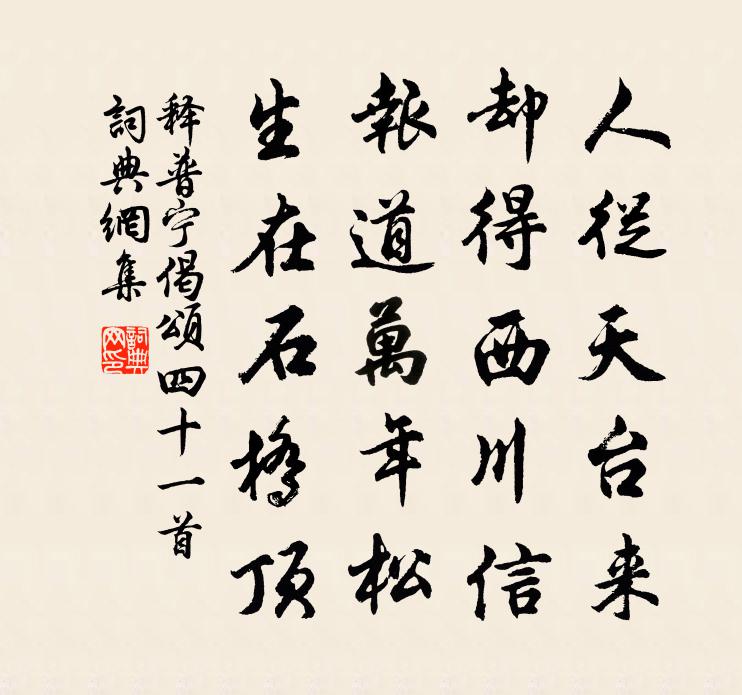 人從天台来
却得西川信
報道萬年松
生在石橋頂
释普宁偈頌四十一首
詞典網集
詞典網印